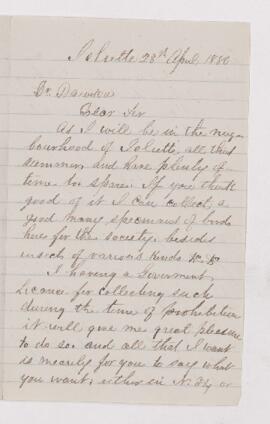 Joliette 28th April, 1880
Dr. Dawson
Dear Sir
As I will be in the neig
bourhood of Joliette all this
summer and have plenty of
time to spare. If you think
good of it I can collect a
good many specimens of birds
here for the society, besides
insects of various kinds &c. &c.
I having a Goverment
Licance for collecting such
during the time of prohibition
it will give me great pleasure
to do so. and all that I want
is mearly for you to say what
you want, either in or